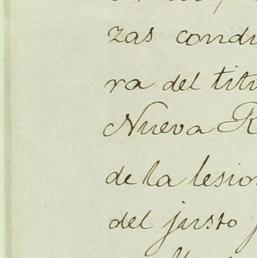 zas condi
ra del titu
Nueva R
de la lesion
del justo